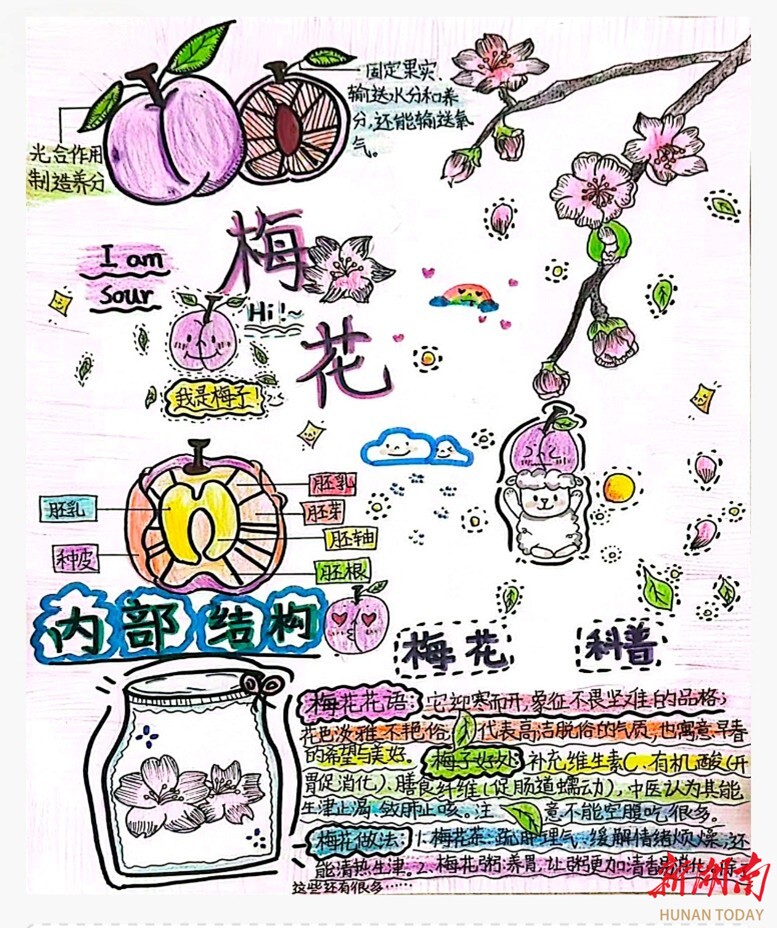 固定果实、
输送水分和养
分,还能输送氧
气。
光合作用
制造养分
梅
花
I am
Sour
Hi!~
我是梅子!
胚乳
种皮
胚乳
胚芽
胚轴
胚根
内部结构
梅花 科普
梅花花语:它迎寒而开,象征不畏坚难的品格;
花色淡雅不艳俗,代表高洁脱俗的气质,也寓意早春
的希望与美好。梅子好处:补充维生素C、有机酸(开
胃促消化)、膳食纤维(促肠道蠕动),中医认为其能
生津止渴、敛肺止咳。注意不能空腹吃很多。
梅花做法:1.梅花茶:疏肝理气、缓解情绪烦燥,还
能清热生津;2.梅花粥:养胃,让粥更加清香
这些还有很多……
新湖南
HUNAN TODAY